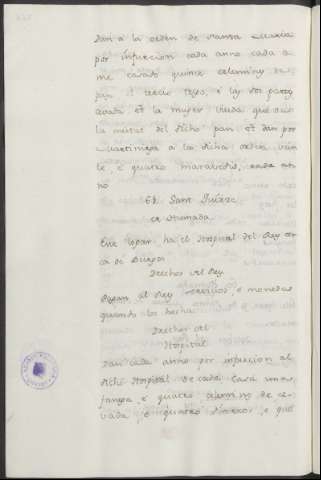 Dan a la orden de Santa Maria
por infurcion cada anno cada o-
me casado quinze celemines de
pan el tercio trigo, e las dos partes
cevada et la muger viuda que den
la meitat del dicho pan et dan por
martiniega a la dicha orden vein
te e quatro maravedis, cada an
no
Sant Juanes
En este logar ha el Hospital del Rey cer
ca de Burgos
Derechos del Rey
Pagan al Rey servicios e monedas
quando los hecha
Derechos del
Hospital
Dan cada anno por infurcion al
dicho Hospital de cada casa una
fanega e quatro celemines de ce-
vada e quatro dineros, e que